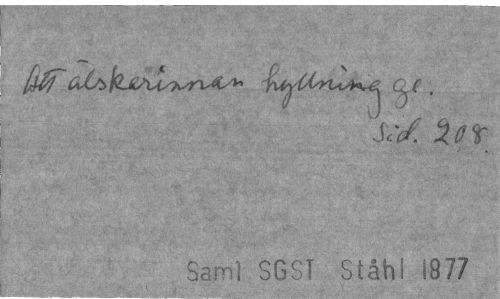 Att älskarinnan hyllning ge.
Sid. 208.
Saml SGST Ståhl 1877